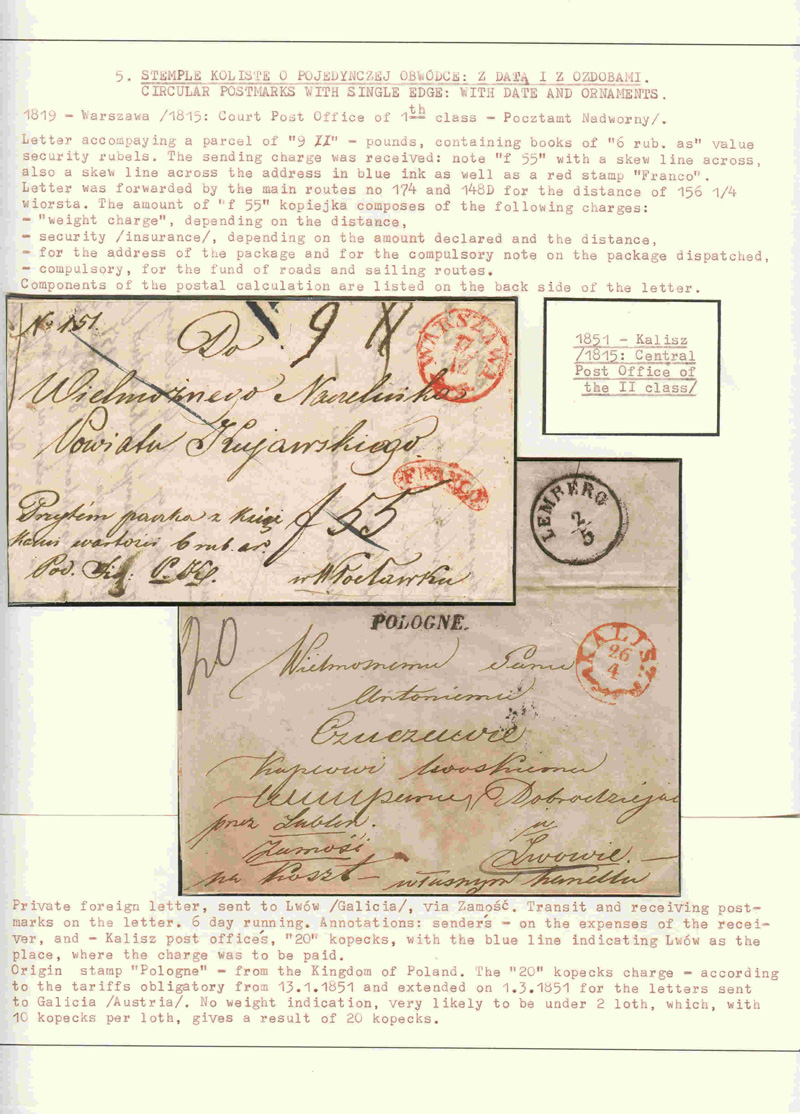 5. STEMPLE KOLISTE O POJEDYNCZEJ OBWÓDCE: Z DATĄ I Z OZDOBAMI.
CIRCULAR POSTMARKS WITH SINGLE EDGE: WITH DATE AND ORNAMENTS.
1819 - Warszawa /1815: Court Post Office of 1th class - Pocztamt Nadworny/.
Letter accompaying a parcel of "9 II" - pounds, containing books of "6 rub. as" value
security rubels. The sending charge was received: note "f 55" with a skew line across,
also a skew line across the address in blue ink as well as a red stamp "Franco".
Letter was forwarded by the main routes no 174 and 148D for the distance of 156 1/4
wiorsta. The amount of "f 55" kopiejka composes of the following charges:
- "weight charge", depending on the distance,
- security /insurance/, depending on the amount declared and the distance,
- for the address of the package and for the compulsory note on the package dispatched,
- compulsory, for the fund of roads and sailing routes.
Components of the postal calculation are listed on the back side of the letter.
No 151.
9 II
WARSZAWA
17
12
Do
Wielmożnego Naczelnika
Powiatu Kujawskiego
FRANCO
Przytém paczka z Książ
kami wartości 6 rub. sr.
f 55
w Włocławku
1851 - Kalisz
/1815: Central
Post Office of
the II class/
LEMBERG
2/5
20
POLOGNE.
KALISZ
26
4
Wielmożnemu Panu
Antoniemu
Czuczawie
Kupcowi Lwoskiemu
Dobrodziejowi
przez Lublin.
w
Zamość
Lwowie.
na Koszt - własnym handlu
Private foreign letter, sent to Lwów /Galicia/, via Zamość. Transit and receiving post-
marks on the letter. 6 day running. Annotations: sender's - on the expenses of the recei-
ver, and - Kalisz post office's, "20" kopecks, with the blue line indicating Lwów as the
place, where the charge was to be paid.
Origin stamp "Pologne" - from the Kingdom of Poland. The "20" kopecks charge - according
to the tariffs obligatory from 13.1.1851 and extended on 1.3.1851 for the letters sent
to Galicia /Austria/. No weight indication, very likely to be under 2 loth, which, with
10 kopecks per loth, gives a result of 20 kopecks.